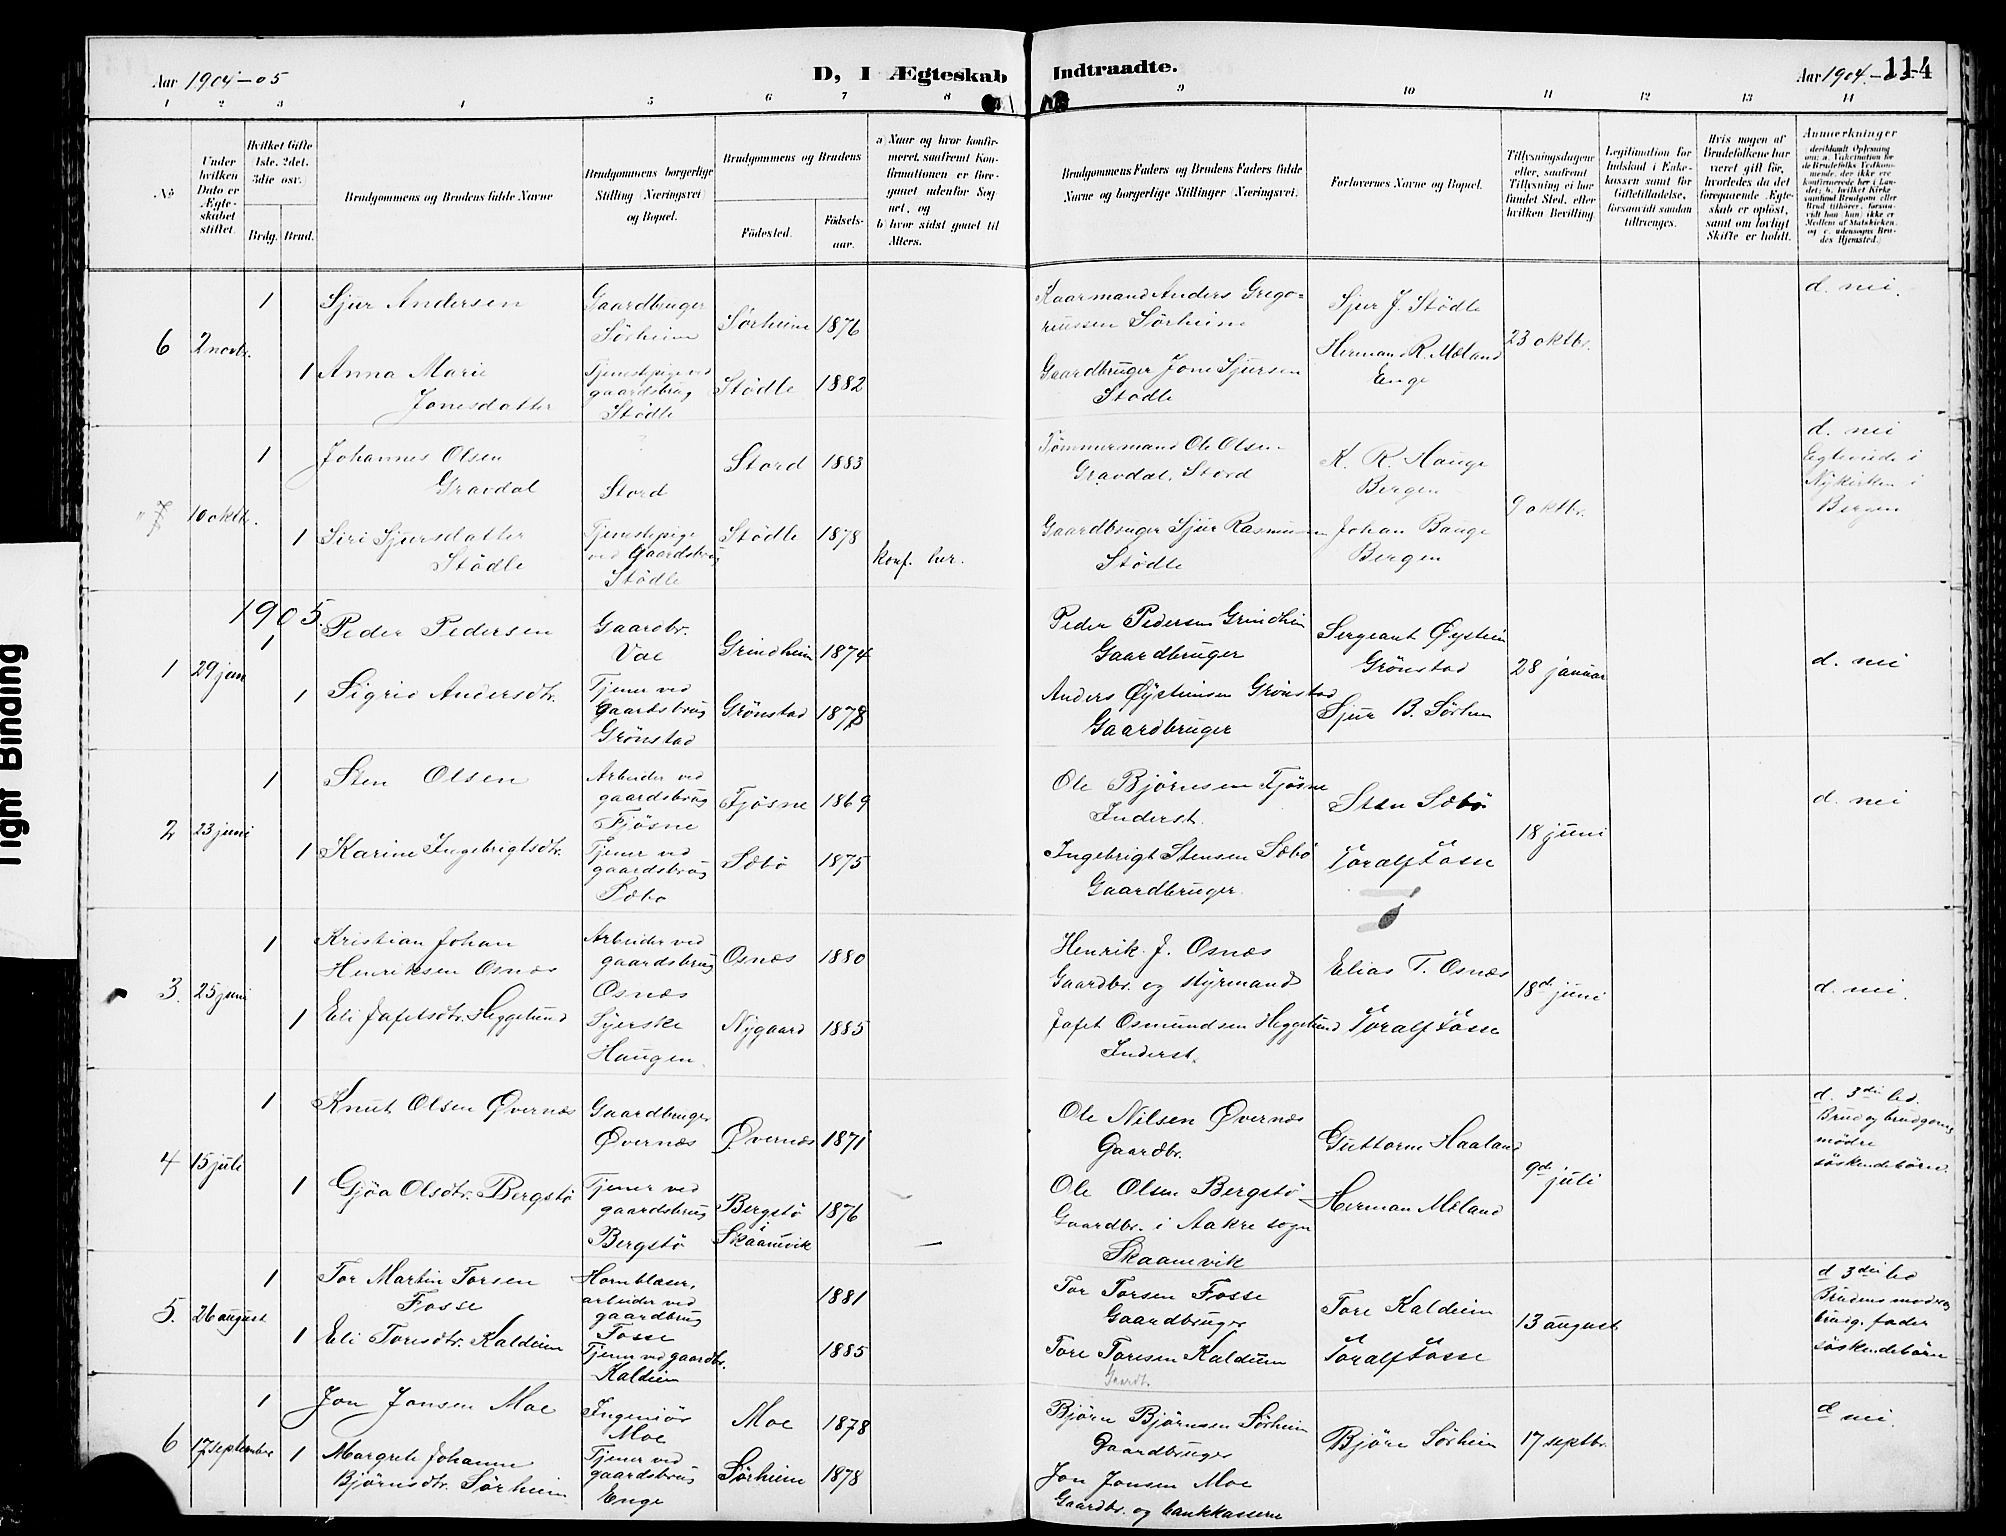 Aar 1904-05
D, I Ægteskab Indtraadte.
Aar 1904.-
114
1 2 3 4 5 6 7 8 9 10 11 12 13 14
No
Under hvilken Dato er Ægteskabet stiftet.
Hvilket Gifte 1ste, 2det, 3die osv.
Brdg. Brud.
Brudgommens og Brudens fulde Navne
Brudgommens borgerlige Stilling (Næringsvei) og Bopæl.
Brudgommens og Brudens
Födested.
Födselsaar.
a) Naar og hvor konfirmeret, saafremt Konfirmationen er foregaaet udenfor Sognet, og
b) hvor sidst gaaet til Alters.
Brudgommens Faders og Brudens Faders fulde Navne og borgerlige Stillinger (Næringsvei).
Forlovernes Navne og Bopæl.
Tillysningsdagene eller, saafremt Tillysning ei har fundet Sted, efter hvilken Bevilling
Legitimation for Indskud i Enkekassen samt for Giftetilladelse, forsaavidt saadan tiltrænges.
Hvis nogen af Brudefolkene har været gift för, hvorledes da det foregaaende Ægteskab er oplöst, samt om lovligt Skifte er holdt.
Anmerkninger
6 2 novbr.
1 Sjur Andersen
Gaardbruger
Sörheim
Sörheim 1876
Kaarmand Anders Gregoriussen Sörheim
Sjur J. Stödle
23 oktbr.
d. nei.
1 Anna Marie
Jonesdatter
Tjenestpige ved
gaardsbrug
Stödle
Stödle 1882
Gaardbruger Jone Sjursen
Stödle
Herman R. Mæland
Enge
7 10 oktbr.
1 Johannes Olsen
Gravdal
Stord
Stord 1883
Tömmermand Ole Olsen
Gravdal, Stord
K. R. Hauge
Bergen
9 oktbr.
d. nei
Egteviede i
Nykirken i
Bergen
1 Siri Sjursdatter
Stödle
Tjenestepige
ved Gaardsbrug
Stödle
Stödle 1878
konf. her.
Gaardbruger Sjur Rasmussen
Stödle
Johan Bauge
Bergen
1905.
1 29 jan
1 Peder Pedersen
Gaardbr.
Vae
Grindheim 1874
Peder Pedersen Grindheim
Gaardbruger
Sergeant Øystein
Grönstad
28 januar
d. nei
1 Sigrid Andersdtr.
Tjener ved
gaardsbrug
Grönstad
Grönstad 1878
Anders Øysteinsen Grönstad
Gaardbruger
Sjur B. Sörheim
2 23 juni
1 Sten Olsen
Arbeider ved
gaardsbrug
Fjösne
Fjösne 1869
Ole Björnsen Fjösne
Inderst.
Sten Sæbö
18 juni
d. nei
1 Karine Ingebrigtsdtr.
Tjener ved
gaardsbrug
Sæbö
Sæbö 1875
Ingebrigt Stensen Sæbö
Gaardbruger.
Toralf Fosse
3. 25 juni
1 Kristian Johan
Henriksen Osnæs
Arbeider ved
gaardsbrug
Osnæs
Osnæs 1880
Henrik J. Osnæs
Gaardbr. og styrmand
Elias T. Osnæs
18de juni
d. nei.
1 Eli Jafetsdtr. Heggelund
Syerske
Haugen.
Nygaard 1885
Jafet Osmundsen Heggelund
Inderst.
Toralf Fosse
4 15 juli
1 Knut Olsen Øvernæs
Gaardbruger
Øvernæs
Øvernæs 1871
Ole Nilsen Øvernæs
Gaardbr.
Guttorm Haaland
9de juli
d. 3die led.
Brud og brudgoms
mödre
söskendebörn.
1 Gjöa Olsdtr. Bergstö
Tjener ved
gaardsbrug
Bergstö
Bergstö
i
Skaanevik
1876
Ole Olsen Bergstö
Gaardbr. i Aakre sogn
Skaanevik
Herman Mæland
5. 26 august
1 Tor Martin Torsen
Fosse
Hornblæser,
arbeider ved
gaardsbrug
Fosse
1881
Tor Torsen Fosse
Gaardbruger
Tore Kaldeim
13 august
d 3die led
Brudens moder og
brudg. fader
söskendebörn
1 Eli Toresdtr. Kaldeim
Tjener ved gaardbr.
Kaldeim
1885
Tore Toresen Kaldeim
Gaardb.
Toralf Fosse
6 17 september
1 Jon Jonsen Moe
Ingeniör
Moe
Moe 1878
Björn Björnsen Sörheim
Gaardbruger
Björn Sörheim
17 septbr.
d nei.
1 Margrete Johanne
Björnsdtr. Sörheim
Tjener ved
gaardsbrug
Enge
Sörheim 1878
Jon Jonsen Moe
Gaardbr. og bankkasserer
Tight Binding